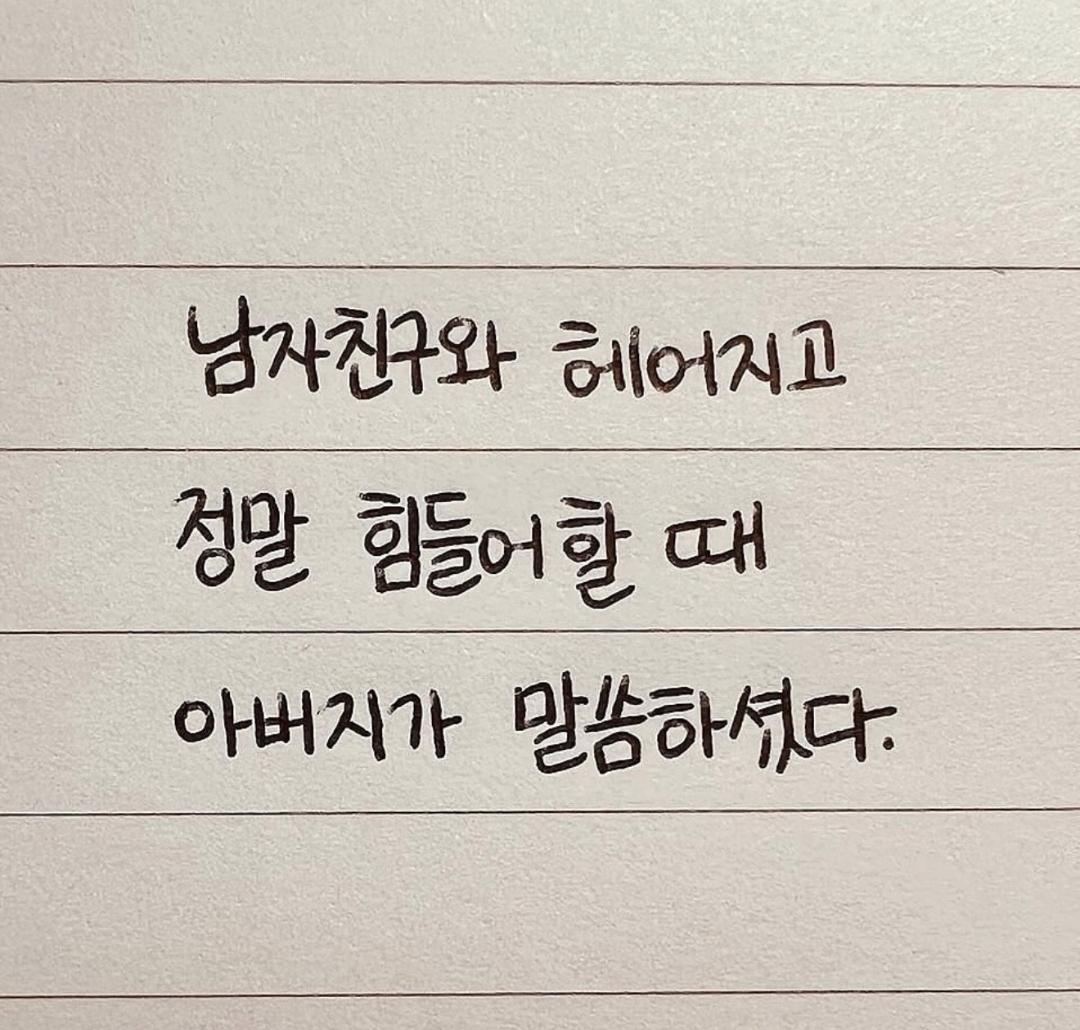 남자친구와 헤어지고
정말 힘들어할 때
아버지가 말씀하셨다.